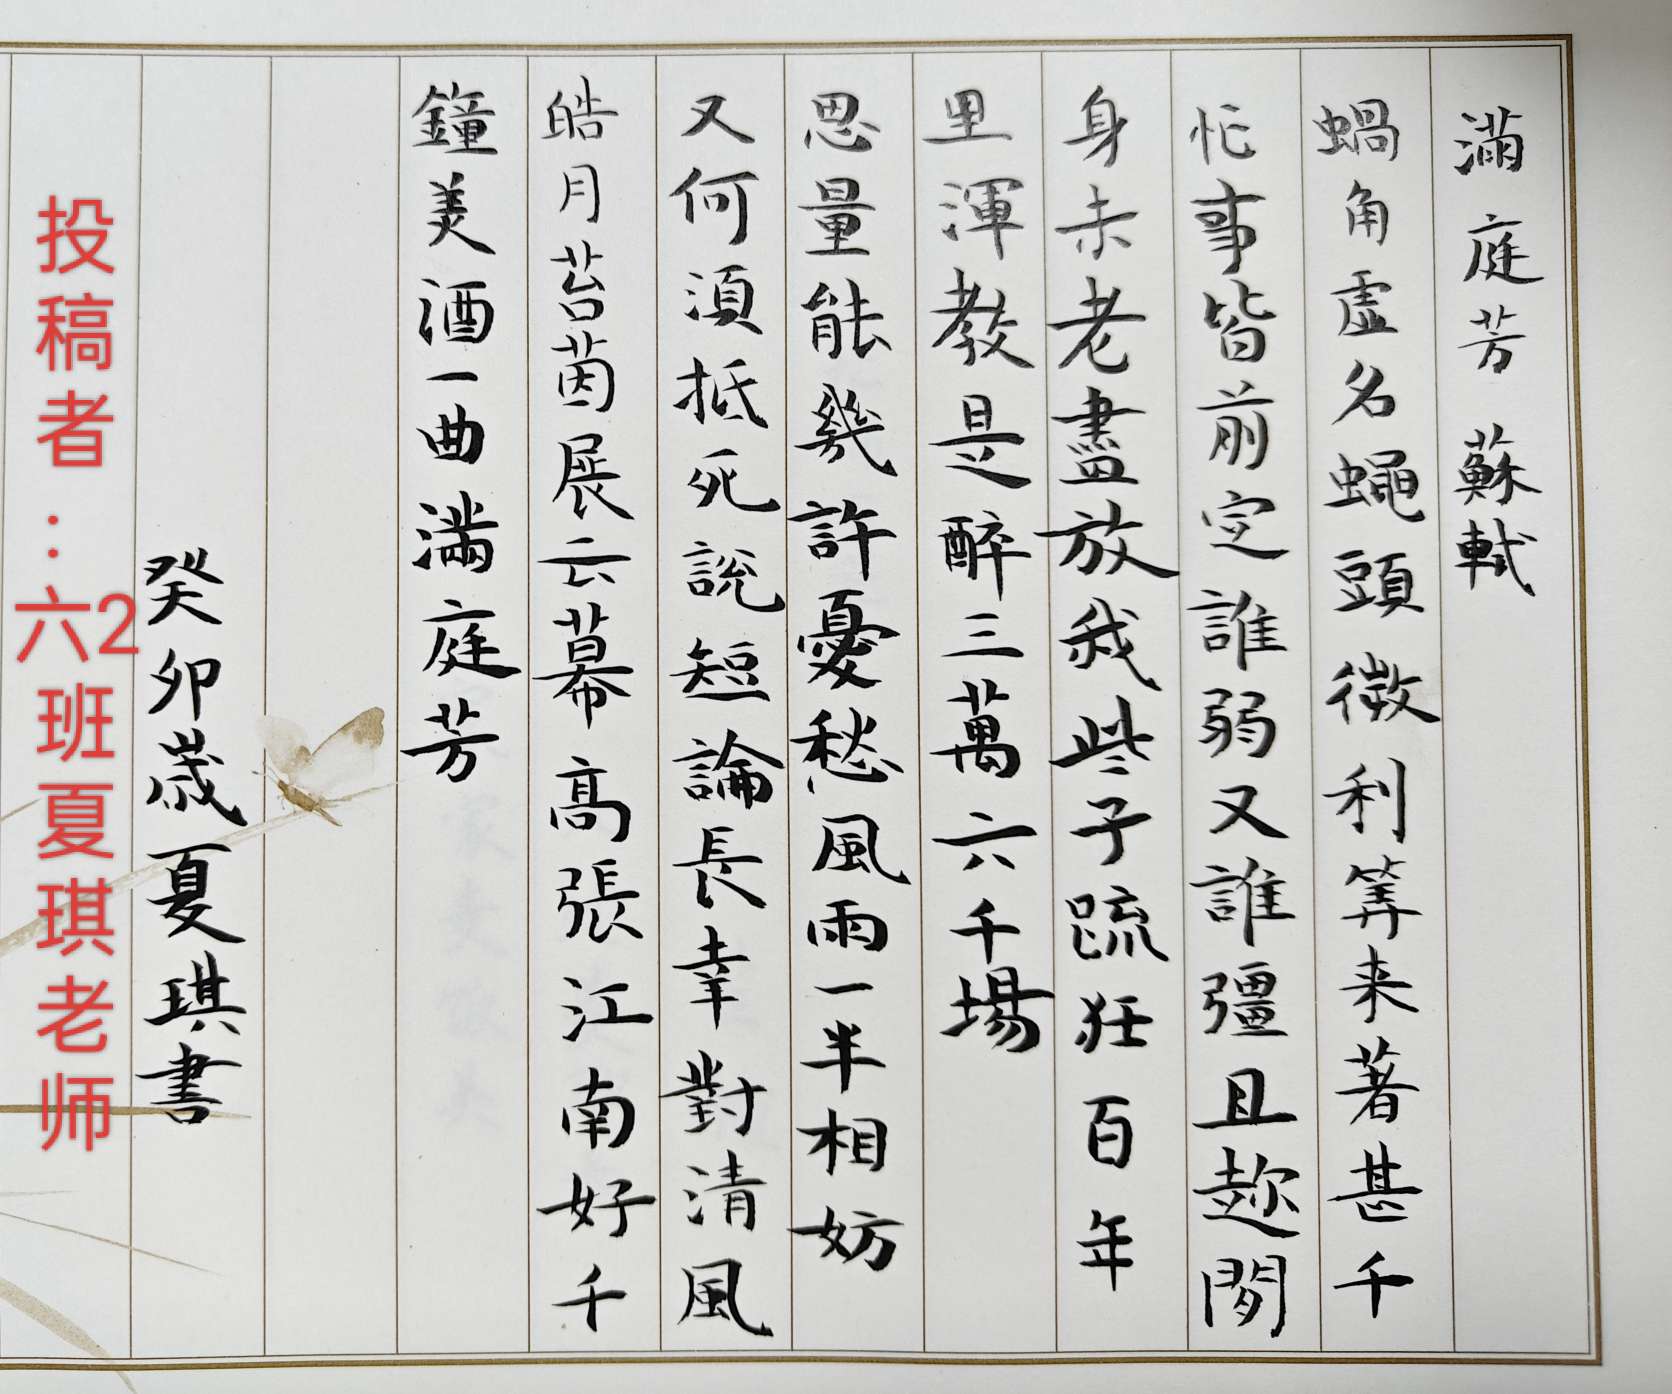 滿庭芳 蘇軾
蝸角虛名蠅頭微利筭来著甚千
忙事皆前定誰弱又誰彊且趂閒
身未老盡放我些子疏狂百年
里渾教是醉三萬六千場
思量能幾許憂愁風雨一半相妨
又何須抵死說短論長幸對清風
皓月苔茵展云幕高張江南好千
鐘美酒一曲滿庭芳
癸卯歲夏琪書
投稿者：六2班夏琪老师